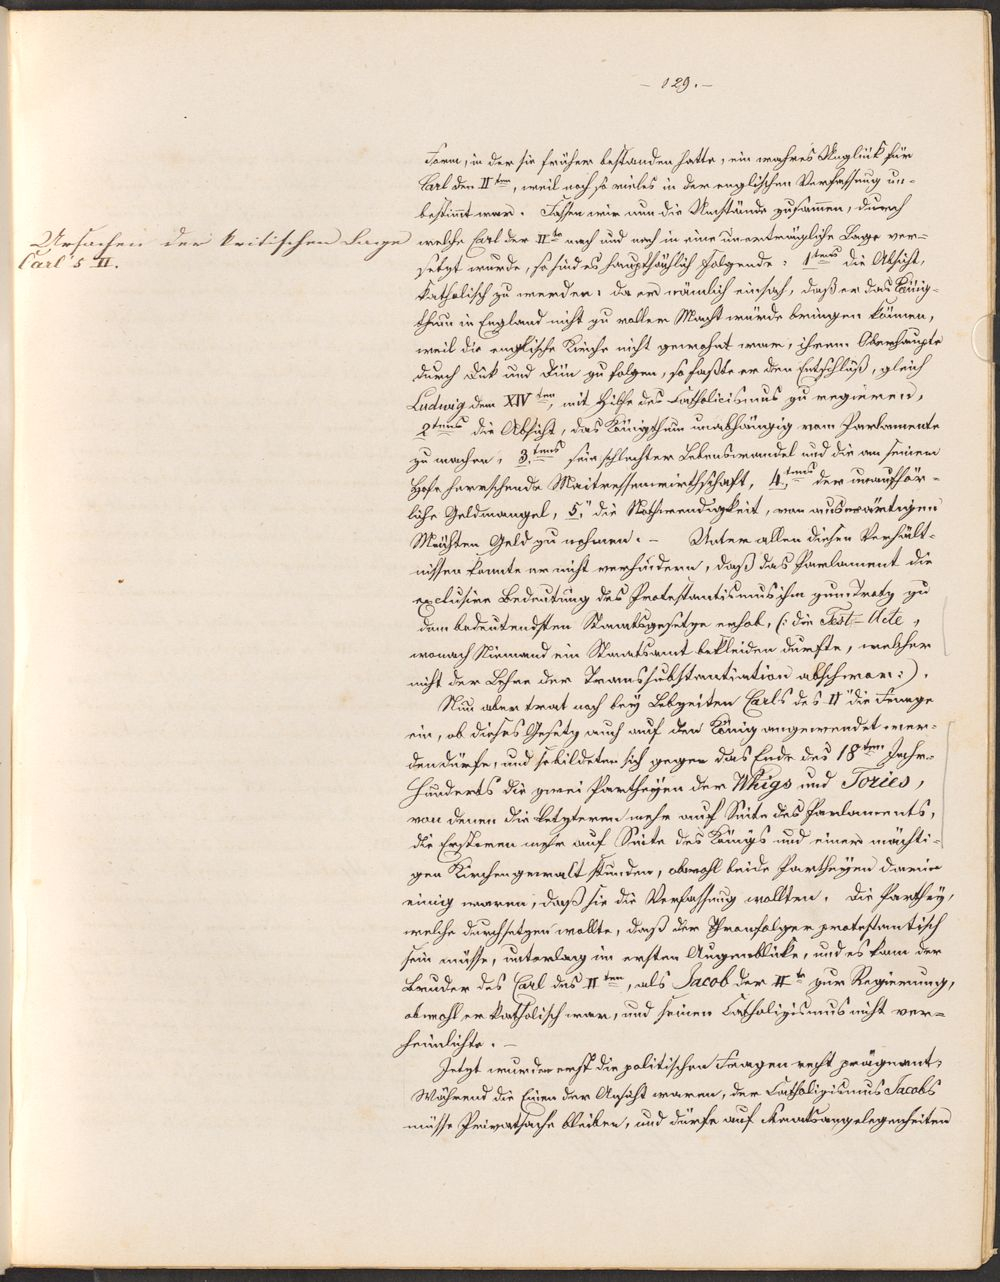 – 129. –
Form, in der sie früher bestanden hatte, ein wahres Unglück für
Carl den II ten, weil noch so vieles in der englischen Verfassung un-
bestimmt war. Fassen wir nun die Umstände zusammen, durch
Ursachen der kritischen Lage
Carl's II.
welche Carl der II te nach und nach in eine unerträgliche Lage ver-
setzt wurde, so sind es hauptsächlich folgende: 1 tens die Absicht,
katholisch zu werden; da er nämlich einsah, daß er das König-
thum in England nicht zu voller Macht würde bringen können,
weil die englische Kirche nicht gewohnt war, ihrem Oberhaupte
durch Dick und Dün zu folgen, so faßte er den Entschluß, gleich
Ludwig dem XIV ten, mit Hilfe des Catholicismus zu regieren,
2 tens die Absicht, das Königthum unabhängig vom Parlamente
zu machen, 3. tens sein schlechter Lebenswandel und die an seinem
Hofe herrschende Maitressenwirthschaft, 4. tens der unaufhör-
liche Geldmangel, 5. die Nothwendigkeit, von auswärtigen
Mächten Geld zu nehmen. – Unter allen diesen Verhält-
nissen konnte er nicht verhindern, daß das Parlament die
exclusive Bedeutung des Protestantismus ihm zum Trotz zu
dem bedeutendsten Staatsgesetze erhob, (: die Test-Acte,
wonach Niemand ein Staatsamt bekleiden durfte, welcher
nicht der Lehre der Transsubstantiation abschwor :).
Nun aber trat noch bey Lebzeiten Carls des II die Frage
ein, ob dieses Gesetz auch auf den König angewendet wer-
den dürfe, und so bildeten sich gegen das Ende des 18 ten Jahr-
hunderts die zwei Partheyen der Whigs und Tories,
von denen die Letzteren mehr auf Seite des Parlaments,
die Ersteren mehr auf Seite des Königs und einer mächti-
gen Kirchengewalt stunden, obwohl beide Partheyen darin
einig waren, daß sie die Verfassung wollten. Die Parthey,
welche durchsetzen wollte, daß der Thronfolger protestantisch
sein müsse, unterlag im ersten Augenblicke, und es kam der
Bruder des Carl des II ten, als Jacob der II te zur Regierung,
obwohl er katholisch war, und seinen Catholizismus nicht ver-
heimlichte. –
Jetzt wurden erst die politischen Fragen recht prägnant,
Während die Einen der Ansicht waren, der Catholizismus Jacobs
müsse Privatsache bleiben, und dürfe auf Staatsangelegenheiten